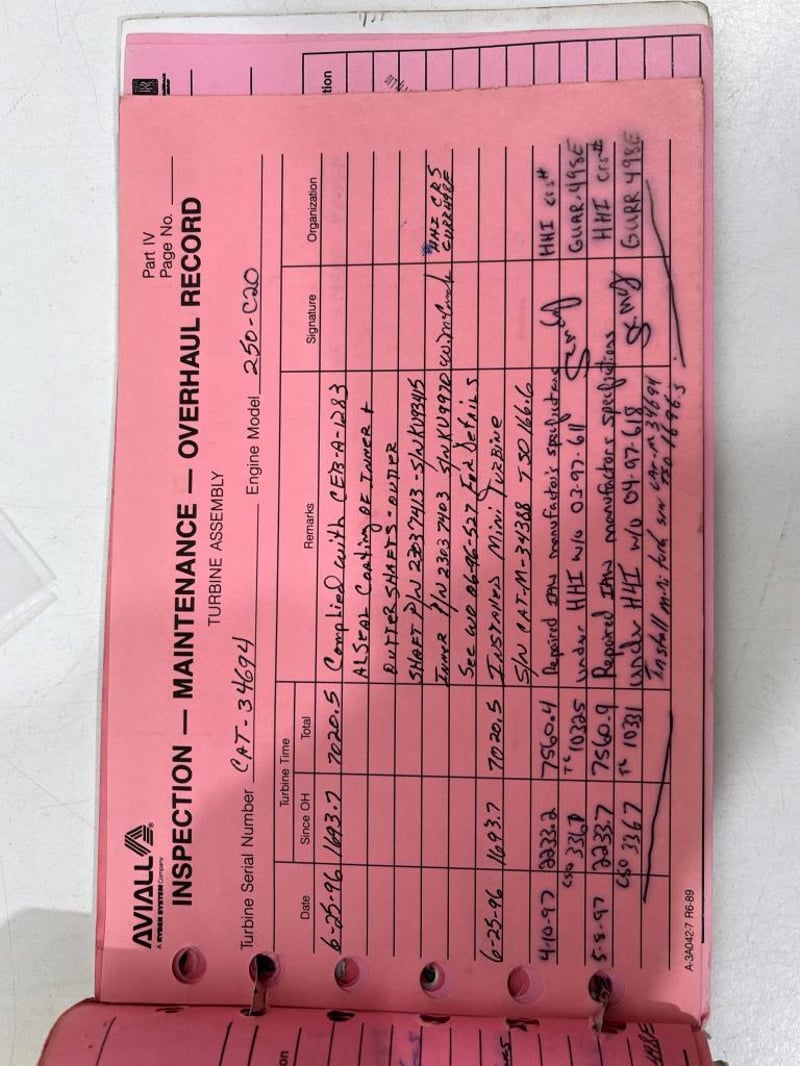 AVIALL
A RYDER SYSTEM Company
Part IV
Page No.
INSPECTION — MAINTENANCE — OVERHAUL RECORD
TURBINE ASSEMBLY
Turbine Serial Number CAT-34694 Engine Model 250-C20
Date Turbine Time Remarks Signature Organization
Since OH Total
6-25-96 1693.7 7020.5 Complied with CEB-A-1283
ALSEAL Coating OF INNER +
OUTTER SHAFTS - OUTTER
SHAFT P/N 23037413 - S/N KU93415
Inner P/N 23037403 S/N KU9970 HHI CRS
See WO 06-96-527 For Details GURR498E
6-25-96 1693.7 7020.5 INSTALLED Mini TURBINE
S/N CAT-M-34308 TSO 166.6
4-10-97 2233.2 7560.4 Repaired IAW manufactors specifications HHI CRS#
CSO 3361 TC 10325 under HHI W/O 03-97-611 GUAR-498E
5-8-97 2233.7 7560.9 Repaired IAW manufactors specifications HHI CRS#
CSO 3367 TC 10331 under HHI W/O 04-97-618 GURR 498E
Install mini turb s/n CAT-M 34694
TSO 1696.3
A-3A042-7 R6-89